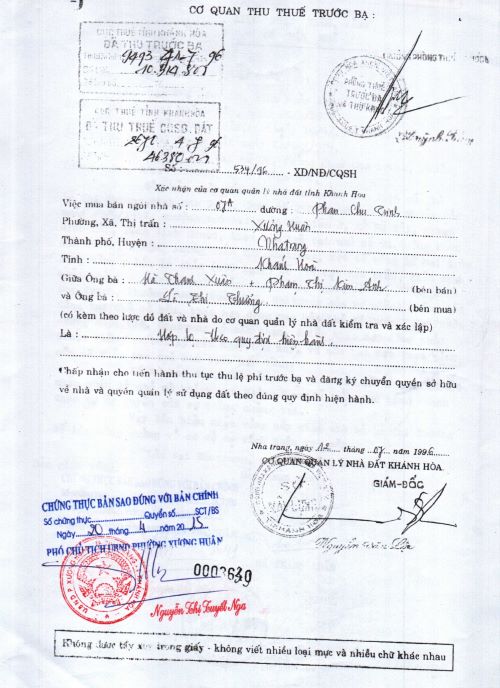 CƠ QUAN THU THUẾ TRƯỚC BẠ :
CỤC THUẾ TỈNH KHÁNH HÒA
ĐÃ THU TRƯỚC BẠ
10.914.800
PHÒNG THUẾ
TRƯỚC BẠ
CỤC THUẾ TỈNH KHÁNH HÒA
Đ - THU THUẾ CQSD. ĐẤT
Số 534/96 - XD/NĐ/CQSH
Xác nhận của cơ quan quản lý nhà đất tỉnh Khánh Hòa
Việc mua bán ngôi nhà số : 07A đường : Phan Chu Trinh
Phường, Xã, Thị trấn : Xương Huân
Thành phố, Huyện : Nha trang
Tỉnh : Khánh Hoà
Giữa Ông bà : Hà Thanh Xuân + Phạm Thị Kim Anh (bên bán)
và Ông bà : Thị (bên mua)
(có kèm theo lược đồ đất và nhà do cơ quan quản lý nhà đất kiểm tra và xác lập)
Là : Hợp lệ theo quy định hiện hành
Chấp nhận cho tiến hành thu tục thu lệ phí trước bạ và đăng ký chuyển quyền sở hữu
về nhà và quyền quản lý sử dụng đất theo đúng quy định hiện hành.
Nha trang, ngày 12 tháng 07 năm 1996
CƠ QUAN QUẢN LÝ NHÀ ĐẤT KHÁNH HÒA
GIÁM-ĐỐC
CHỨNG THỰC BẢN SAO ĐÚNG VỚI BẢN CHÍNH
Số chứng thực Quyển số SCT/BS
Ngày 20 tháng 4 năm 2015
PHÓ CHỦ TỊCH UBND PHƯỜNG XƯƠNG HUÂN
Nguyễn Thị Tuyết Nga
Không được tẩy xóa trong giấy - không viết nhiều loại mực và nhiều chữ khác nhau